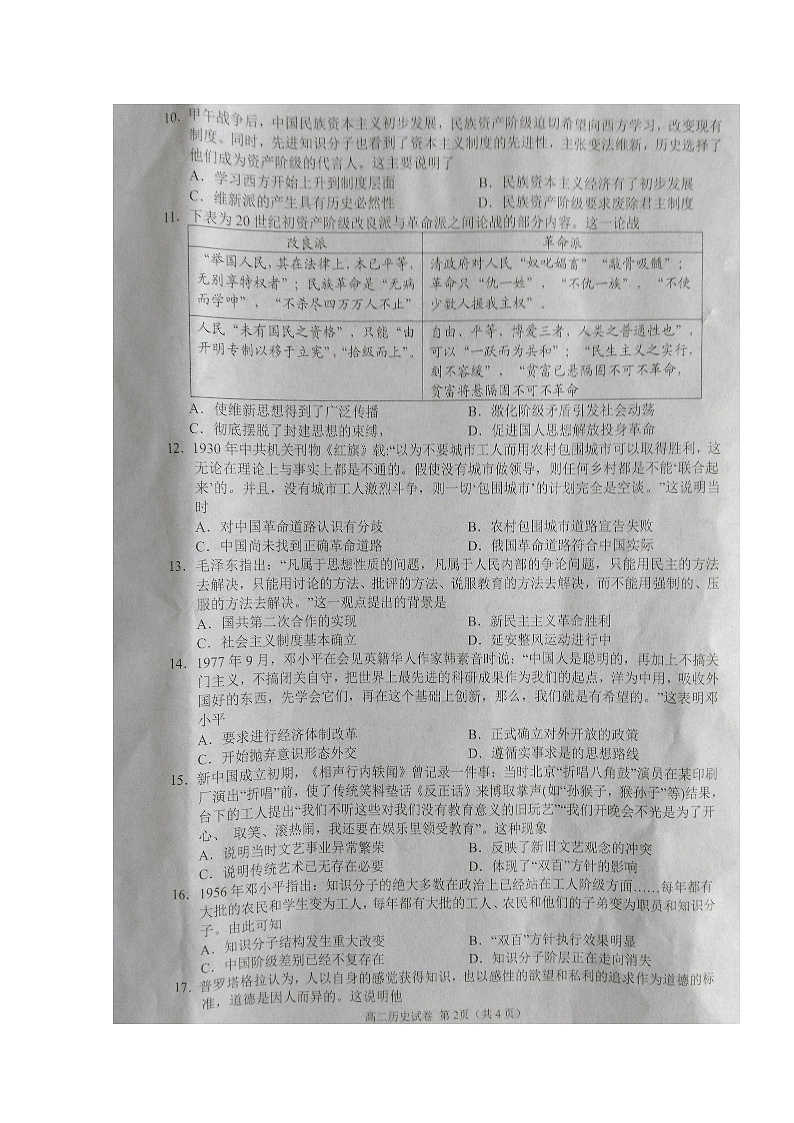 10. 甲午战争后，中国民族资本主义初步发展，民族资产阶级迫切希望向西方学习，改变现有
制度。同时，先进知识分子也看到了资本主义制度的先进性，主张变法维新，历史选择了
他们成为资产阶级的代言人。这主要说明了
A．学习西方开始上升到制度层面 B．民族资本主义经济有了初步发展
C．维新派的产生具有历史必然性 D．民族资产阶级要求废除君主制度
11．下表为 20 世纪初资产阶级改良派与革命派之间论战的部分内容。这一论战
改良派 革命派
“举国人民，其在法律上，本已平等， 清政府对人民“奴叱媪畜”“敲骨吸髓”；
无别享特权者”；民族革命是“无病 革命只“仇一姓”，“不仇一族”，“不使
而学呻”，“不杀尽四万万人不止” 少数人握我主权”。
人民“未有国民之资格”，只能“由 自由、平等、博爱三者，人类之普通性也”，
开明专制以移于立宪”，“拾级而上”。 可以“一跃而为共和”；“民生主义之实行，
刻不容缓”，“贫富已悬隔固不可不革命，
贫富将悬隔固不可不革命
A．使维新思想得到了广泛传播 B．激化阶级矛盾引发社会动荡
C．彻底摆脱了封建思想的束缚， D．促进国人思想解放投身革命
12．1930 年中共机关刊物《红旗》载:“以为不要城市工人而用农村包围城市可以取得胜利，这
无论在理论上与事实上都是不通的。假使没有城市做领导，则任何乡村都是不能‘联合起
来’的。并且，没有城市工人激烈斗争，则一切‘包围城市’的计划完全是空谈。”这说明当
时
A．对中国革命道路认识有分歧 B．农村包围城市道路宣告失败
C．中国尚未找到正确革命道路 D．俄国革命道路符合中国实际
13．毛泽东指出：“凡属于思想性质的问题，凡属于人民内部的争论问题，只能用民主的方法
去解决，只能用讨论的方法、批评的方法、说服教育的方法去解决，而不能用强制的、压
服的方法去解决。”这一观点提出的背景是
A．国共第二次合作的实现 B．新民主主义革命胜利
C．社会主义制度基本确立 D．延安整风运动进行中
14．1977 年 9 月，邓小平在会见英籍华人作家韩素音时说：“中国人是聪明的，再加上不搞关
门主义，不搞闭关自守，把世界上最先进的科研成果作为我们的起点，洋为中用，吸收外
国好的东西，先学会它们，再在这个基础上创新，那么，我们就是有希望的。”这表明邓
小平
A．要求进行经济体制改革 B．正式确立对外开放的政策
C．开始抛弃意识形态外交 D．遵循实事求是的思想路线
15．新中国成立初期，《相声行内轶闻》曾记录一件事：当时北京“折唱八角鼓”演员在某印刷
厂演出“折唱”前，使了传统笑料垫话《反正话》来博取掌声(如“孙猴子，猴孙子”等)结果，
台下的工人提出“我们不听这些对我们没有教育意义的旧玩艺”“我们开晚会不光是为了开
心、 取笑、滚热闹，我还要在娱乐里领受教育”。这种现象
A．说明当时文艺事业异常繁荣 B．反映了新旧文艺观念的冲突
C．说明传统艺术已无存在必要 D．体现了“双百”方针的影响
16．1956 年邓小平指出：知识分子的绝大多数在政治上已经站在工人阶级方面……每年都有
大批的农民和学生变为工人，每年都有大批的工人、农民和他们的子弟变为职员和知识分
子。由此可知
A．知识分子结构发生重大改变 B．“双百”方针执行效果明显
C．中国阶级差别已经不复存在 D．知识分子阶层正在走向消失
17．普罗塔格拉认为，人以自身的感觉获得知识，也以感性的欲望和私利的追求作为道德的标
准，道德是因人而异的。这说明他
高二历史试卷 第 2页（共 4 页）